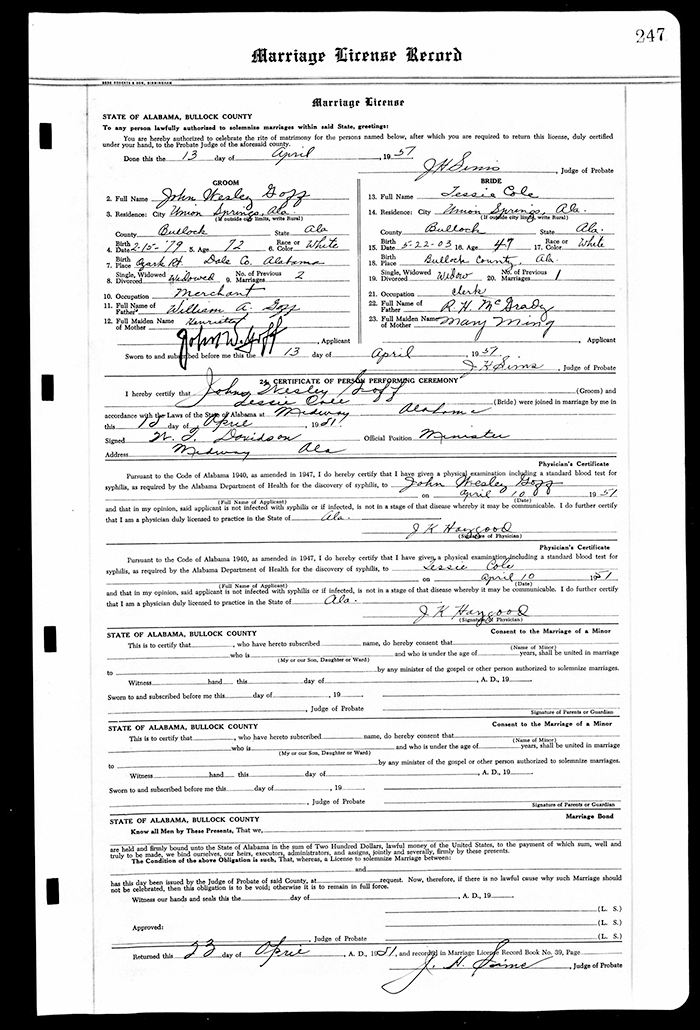 247
Marriage License Record
Marriage License
STATE OF ALABAMA, BULLOCK COUNTY
To any person lawfully authorized to solemnize marriages within said State, greetings:
You are hereby authorized to celebrate the rite of matrimony for the persons named below, after which you are required to return this license, duly certified
under your hand, to the Probate Judge of the aforesaid county.
Done this the 13 day of April, 1951
J H Sims, Judge of Probate
GROOM
2. Full Name John Wesley Goff
3. Residence: City Union Springs, Ala.
(If outside city limits, write Rural)
County Bullock State Ala
4. Birth Date 2-15-'79 5. Age 72 6. Race or Color White
7. Birth Place Ozark Rt Dale Co. Alabama
8. Single, Widowed Divorced Widowed 9. No. of Previous Marriages 2
10. Occupation Merchant
11. Full Name of Father William A. Goff
12. Full Maiden Name of Mother Henrietta
John W. Goff, Applicant
BRIDE
13. Full Name Lessie Cole
14. Residence: City Union Springs, Ala.
(If outside city limits, write Rural)
County Bullock State Ala.
15. Birth Date 5-22-03 16. Age 47 17. Race or Color White
18. Birth Place Bullock County, Ala.
19. Single, Widowed Divorced Widow 20. No. of Previous Marriages 1
21. Occupation Clerk
22. Full Name of Father R. H. McGrady
23. Full Maiden Name of Mother Mary Ming
, Applicant
Sworn to and subscribed before me this the 13 day of April, 1951
J. K Sims, Judge of Probate
24. CERTIFICATE OF PERSON PERFORMING CEREMONY
I hereby certify that John Wesley Goff (Groom) and
Lessie Cole (Bride) were joined in marriage by me in
accordance with the Laws of the State of Alabama at Midway Alabama
this 13 day of April 1951
Signed W. J. Davidson Official Position Minister
Address Midway Ala
Physician's Certificate
Pursuant to the Code of Alabama 1940, as amended in 1947, I do hereby certify that I have given a physical examination including a standard blood test for
syphilis, as required by the Alabama Department of Health for the discovery of syphilis, to John Wesley Goff
on April 10 1951
(Full Name of Applicant) (Date)
and that in my opinion, said applicant is not infected with syphilis or if infected, is not in a stage of that disease whereby it may be communicable. I do further certify
that I am a physician duly licensed to practice in the State of Ala.
J K Haygood
(Signature of Physician)
Physician's Certificate
Pursuant to the Code of Alabama 1940, as amended in 1947, I do hereby certify that I have given a physical examination including a standard blood test for
syphilis, as required by the Alabama Department of Health for the discovery of syphilis, to Lessie Cole
on April 10 1951
(Full Name of Applicant) (Date)
and that in my opinion, said applicant is not infected with syphilis or if infected, is not in a stage of that disease whereby it may be communicable. I do further certify
that I am a physician duly licensed to practice in the State of Ala.
J K Haygood
(Signature of Physician)
STATE OF ALABAMA, BULLOCK COUNTY Consent to the Marriage of a Minor
This is to certify that, who have hereto subscribed name, do hereby consent that
(Name of Minor)
who is and who is under the age of years, shall be united in marriage
(My or our Son, Daughter or Ward)
to by any minister of the gospel or other person authorized to solemnize marriages.
Witness hand this day of, A. D., 19
Sworn to and subscribed before me this day of, 19
, Judge of Probate Signature of Parents or Guardian
STATE OF ALABAMA, BULLOCK COUNTY Consent to the Marriage of a Minor
This is to certify that, who have hereto subscribed name, do hereby consent that
(Name of Minor)
who is and who is under the age of years, shall be united in marriage
(My or our Son, Daughter or Ward)
to by any minister of the gospel or other person authorized to solemnize marriages.
Witness hand this day of, A. D., 19
Sworn to and subscribed before me this day of, 19
, Judge of Probate Signature of Parents or Guardian
STATE OF ALABAMA, BULLOCK COUNTY Marriage Bond
Know all Men by These Presents, That we,
are held and firmly bound unto the State of Alabama in the sum of Two Hundred Dollars, lawful money of the United States, to the payment of which sum, well and
truly to be made, we bind ourselves, our heirs, executors, administrators, and assigns, jointly and severally, firmly by these presents.
The Condition of the above Obligation is such, That, whereas, a License to solemnize Marriage between:
and
has this day been issued by the Judge of Probate of said County, at request. Now, therefore, if there is no lawful cause why such Marriage should
not be celebrated, then this obligation is to be void; otherwise it is to remain in full force.
Witness our hands and seals this the day of, A. D., 19
(L. S.)
Approved: (L. S.)
, Judge of Probate (L. S.)
Returned this 23 day of April, A. D., 1951, and recorded in Marriage License Record Book No. 39, Page
J. H. Sims, Judge of Probate